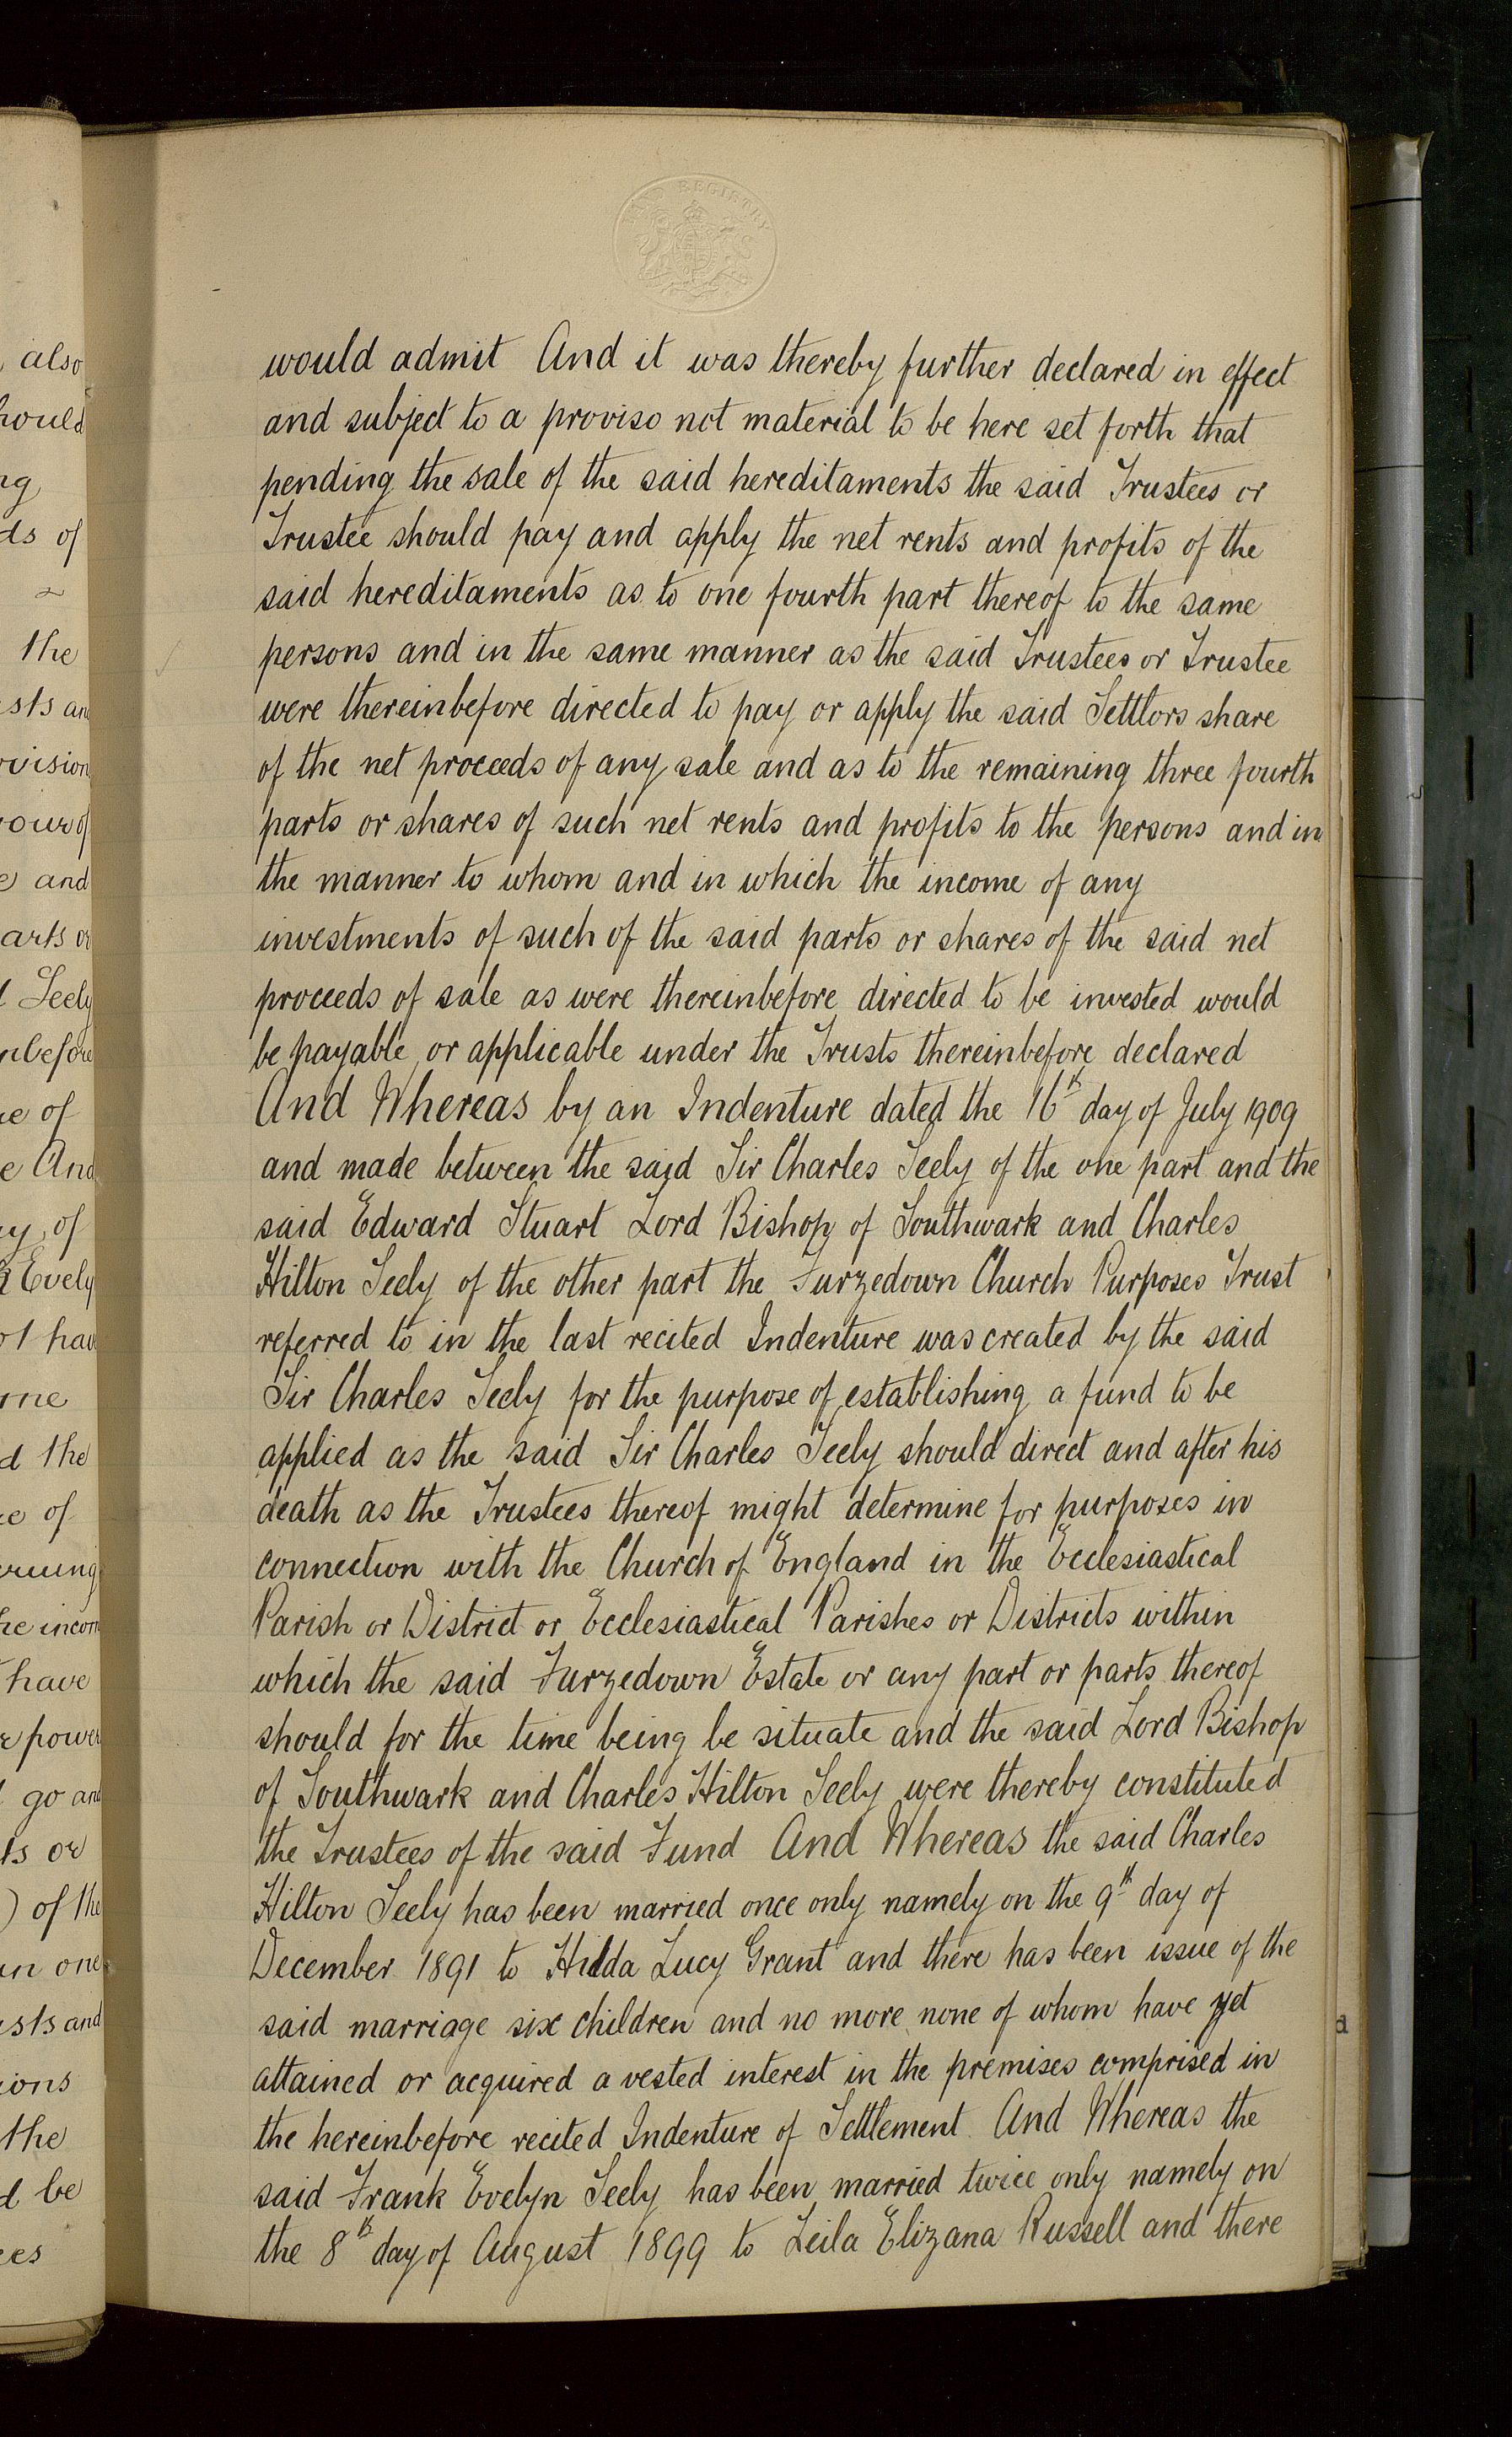 would admit And it was thereby further declared in effect
and subject to a proviso not material to be here set forth that
pending the sale of the said hereditaments the said Trustees or
Trustee should pay and apply the net rents and profits of the
said hereditaments as to one fourth part thereof to the same
persons and in the same manner as the said Trustees or Trustee
were thereinbefore directed to pay or apply the said Settlors share
of the net proceeds of any sale and as to the remaining three fourth
parts or shares of such net rents and profits to the persons and in
the manner to whom and in which the income of any
investments of such of the said parts or shares of the said net
proceeds of sale as were thereinbefore directed to be invested would
be payable or applicable under the Trusts thereinbefore declared
And Whereas by an Indenture dated the 16th day of July 1909
and made between the said Sir Charles Seely of the one part and the
said Edward Stuart Lord Bishop of Southwark and Charles
Hilton Seely of the other part the Furzedown Church Purposes Trust
referred to in the last recited Indenture was created by the said
Sir Charles Seely for the purpose of establishing a fund to be
applied as the said Sir Charles Seely should direct and after his
death as the Trustees thereof might determine for purposes in
connection with the Church of England in the Ecclesiastical
Parish or District or Ecclesiastical Parishes or Districts within
which the said Furzedown Estate or any part or parts thereof
should for the time being be situate and the said Lord Bishop
of Southwark and Charles Hilton Seely were thereby constituted
the Trustees of the said Fund And Whereas the said Charles
Hilton Seely has been married once only namely on the 9th day of
December 1891 to Hilda Lucy Grant and there has been issue of the
said marriage six children and no more none of whom have yet
attained or acquired a vested interest in the premises comprised in
the hereinbefore recited Indenture of Settlement And Whereas the
said Frank Evelyn Seely has been married twice only namely on
the 8th day of August 1899 to Leila Elizana Russell and there